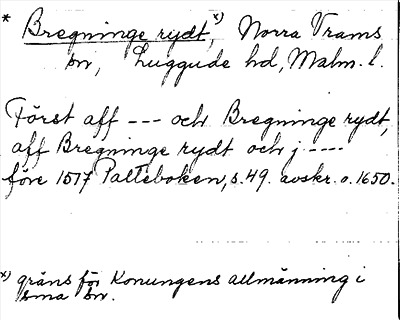 * Bregninge rydt, x) Norra Vrams
sn, Luggude hd, Malm. l.
Först aff --- och Bregninge rydt,
aff Bregninge rydt och j ----
före 1517 Palteboken, s. 49. avskr. o. 1650.
x) gräns för Konungens allmänning i
sma sn.